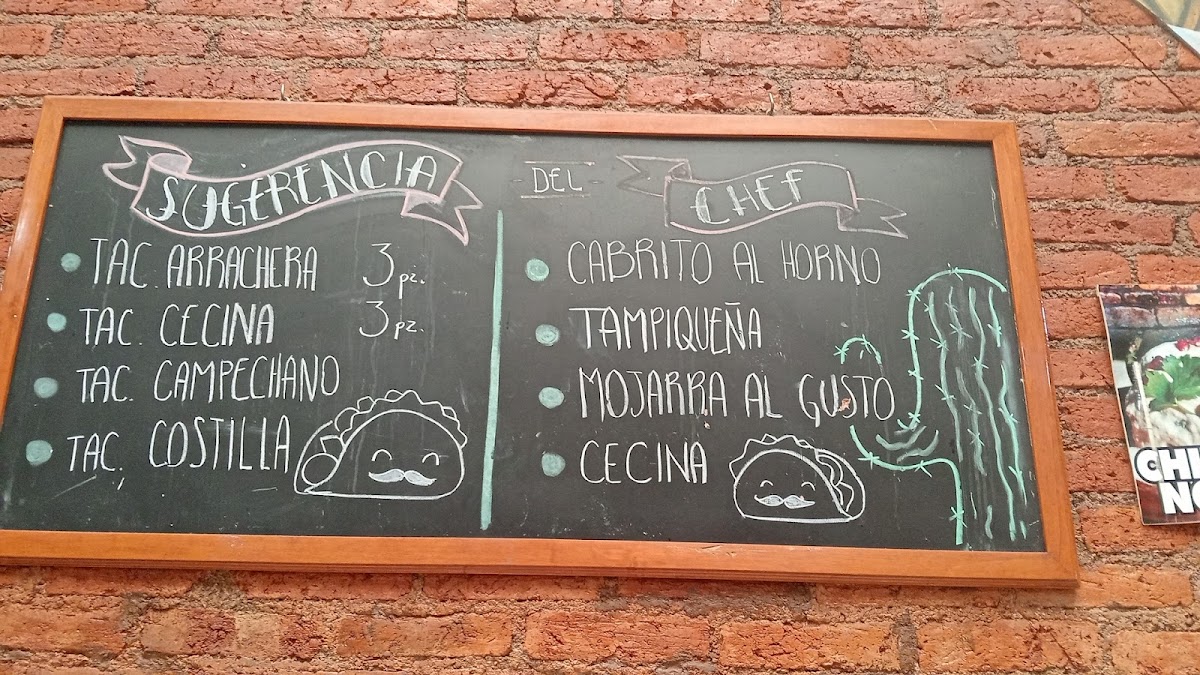 SUGERENCIA
DEL
CHEF
TAC. ARRACHERA 3 pz.
TAC. CECINA 3 pz.
TAC. CAMPECHANO
TAC. COSTILLA
CABRITO AL HORNO
TAMPIQUEÑA
MOJARRA AL GUSTO
CECINA